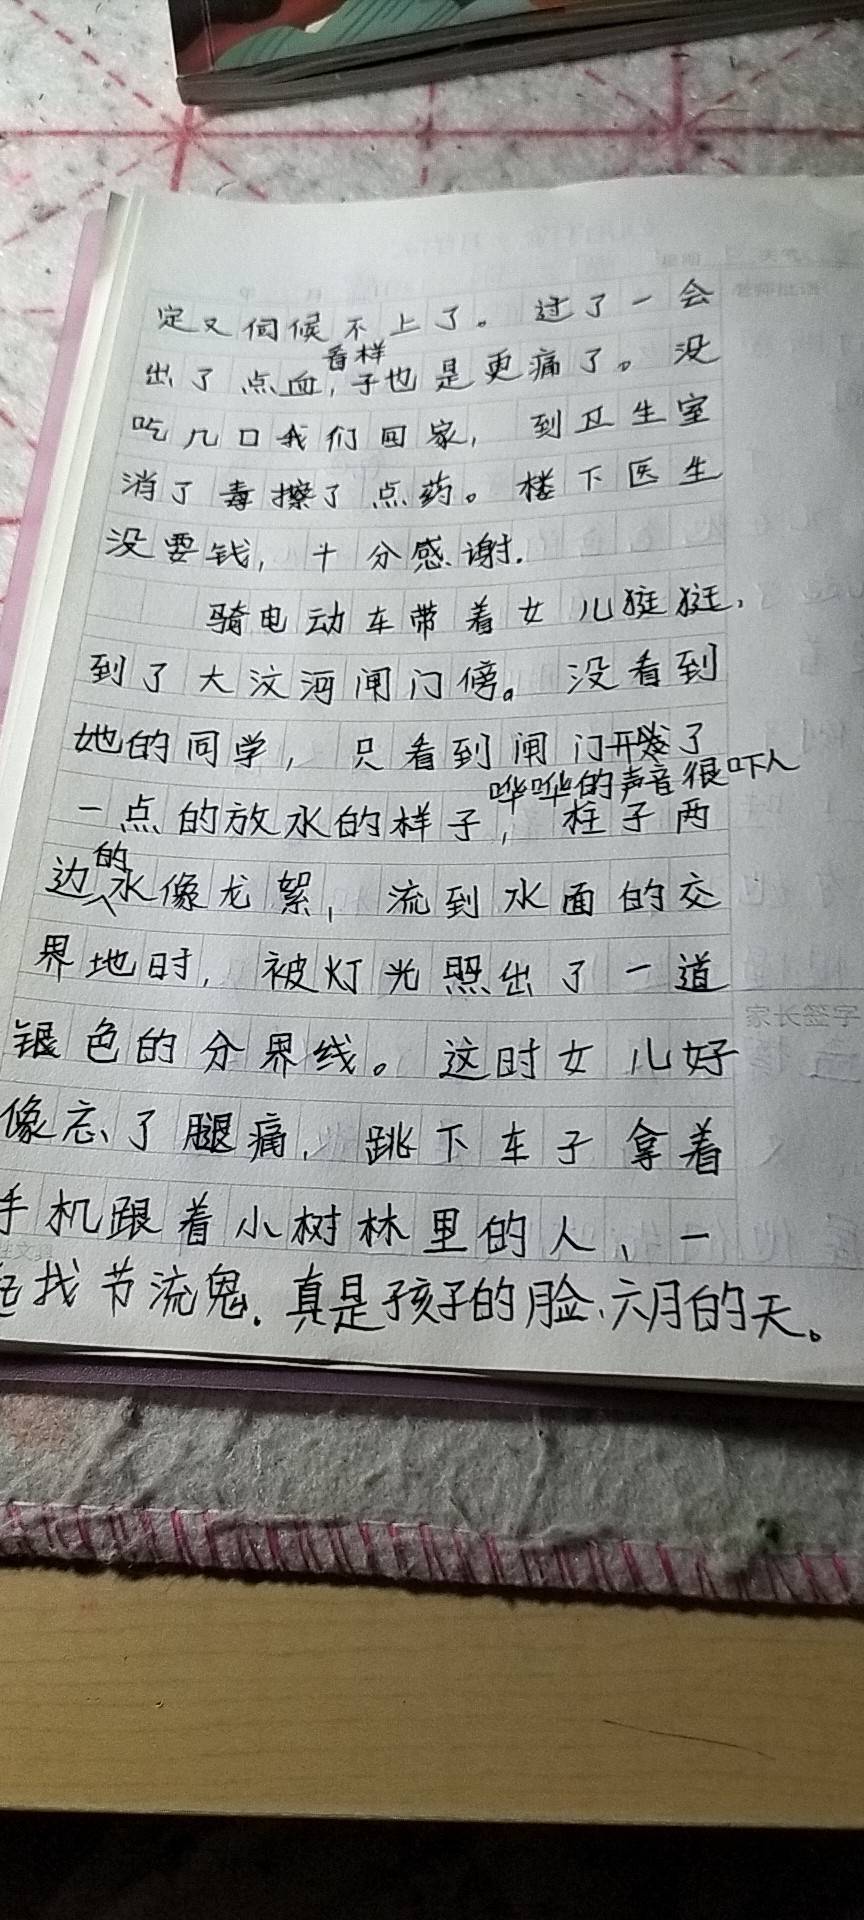 定又伺候不上了。过了一会
出了点血,看样子也是更痛了。没
吃几口我们回家,到卫生室
消了毒擦了点药。楼下医生
没要钱,十分感谢.
骑电动车带着女儿狿狿,
到了大汶河闸门傍。没看到
她的同学,只看到闸门开发了
一点的放水的样子,哗哗的声音很吓人
柱子两
边的水像龙絮,流到水面的交
界地时,被灯光照出了一道
银色的分界线。这时女儿好
像忘了腿痛,跳下车子拿着
手机跟着小树林里的人、一
起找节流鬼.真是孩子的脸、六月的天。
家长签字